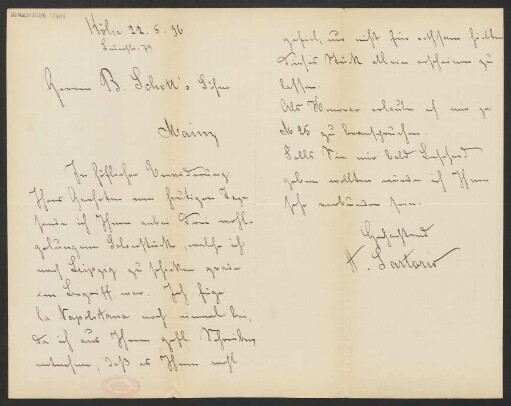 Köln 22. 5. 96
Herren B. Schott's Söhne
Mainz
In höflicher Erwiderung
Ihres Geehrten vom heutigen Tage
sende ich Ihnen anbei drei wohl-
gelungene Solostücke, welche ich
nach Leipzig zu schicken gerade
im Begriff war. Ich füge
la Napolitana noch einmal bei,
da ich aus Ihrem gefl. Schreiben
entnehme, daß es Ihnen wohl
gefiel, nur nicht für
dieses Stück allein erscheinen zu
lassen.
Als Honorar erlaube ich mir je
M 25 zu beanspruchen.
Falls Sie mir bald Bescheid
geben wollten würde ich Ihnen
sehr verbunden sein.
Hochachtend
A. Sartorio